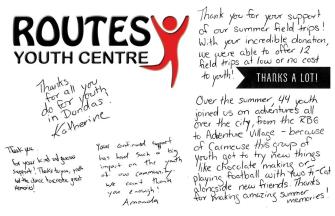 ROUTES
YOUTH CENTRE
Thanks
for all you
do for youth
in Dundas.
Katherine
Thank you
for your kind and generous
support! Thanks to you, youth
memories!
Your continued support
has had such a big
impact on the youth
of our community
we can't thank
you enough!
Amanda
Thank you for your support
of our summer field trips!
With your incredible donation,
we were able to offer 12
field trips at low or no cost
to youth!
THANKS A LOT!
Over the summer, 44 youth
joined us on adventures all
over the city, from the RBG
to Adventure Village - because
of Carmeuse this group of
youth got to try new things
like chocolate making or
playing football with two ti-cats
alongside new friends. Thanks
for making amazing summer
memories!